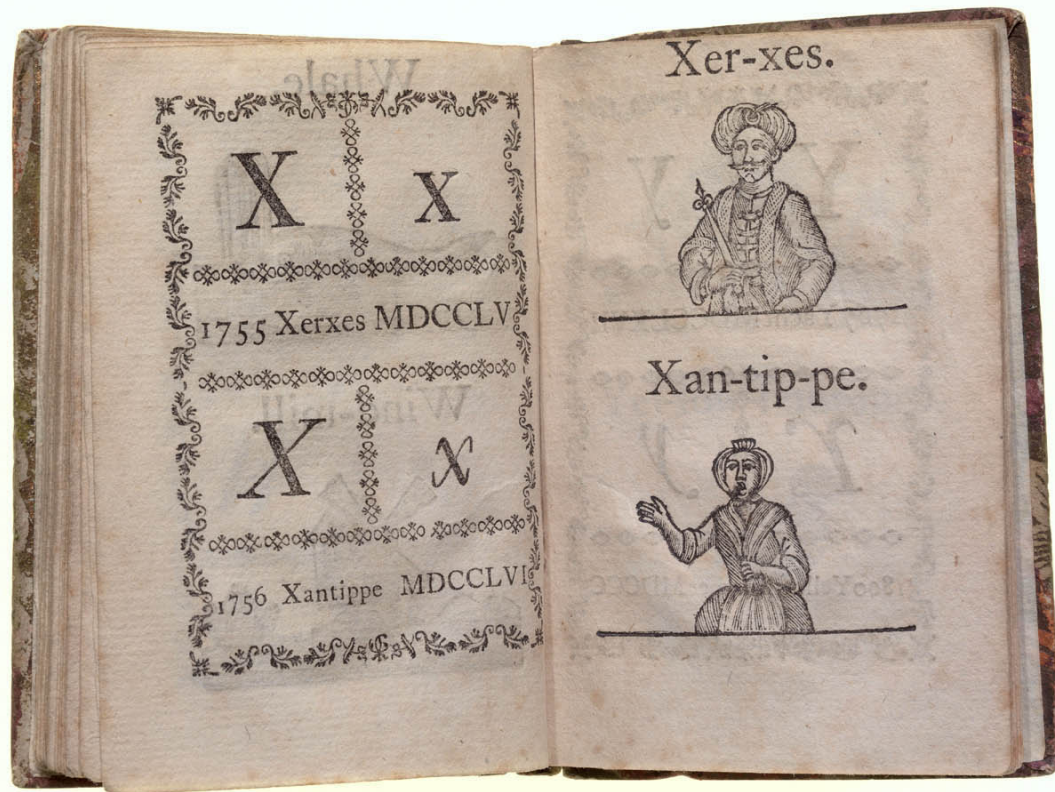 X x
1755 Xerxes MDCCLV
X x
1756 Xantippe MDCCLVI
Xer-xes.
Xan-tip-pe.